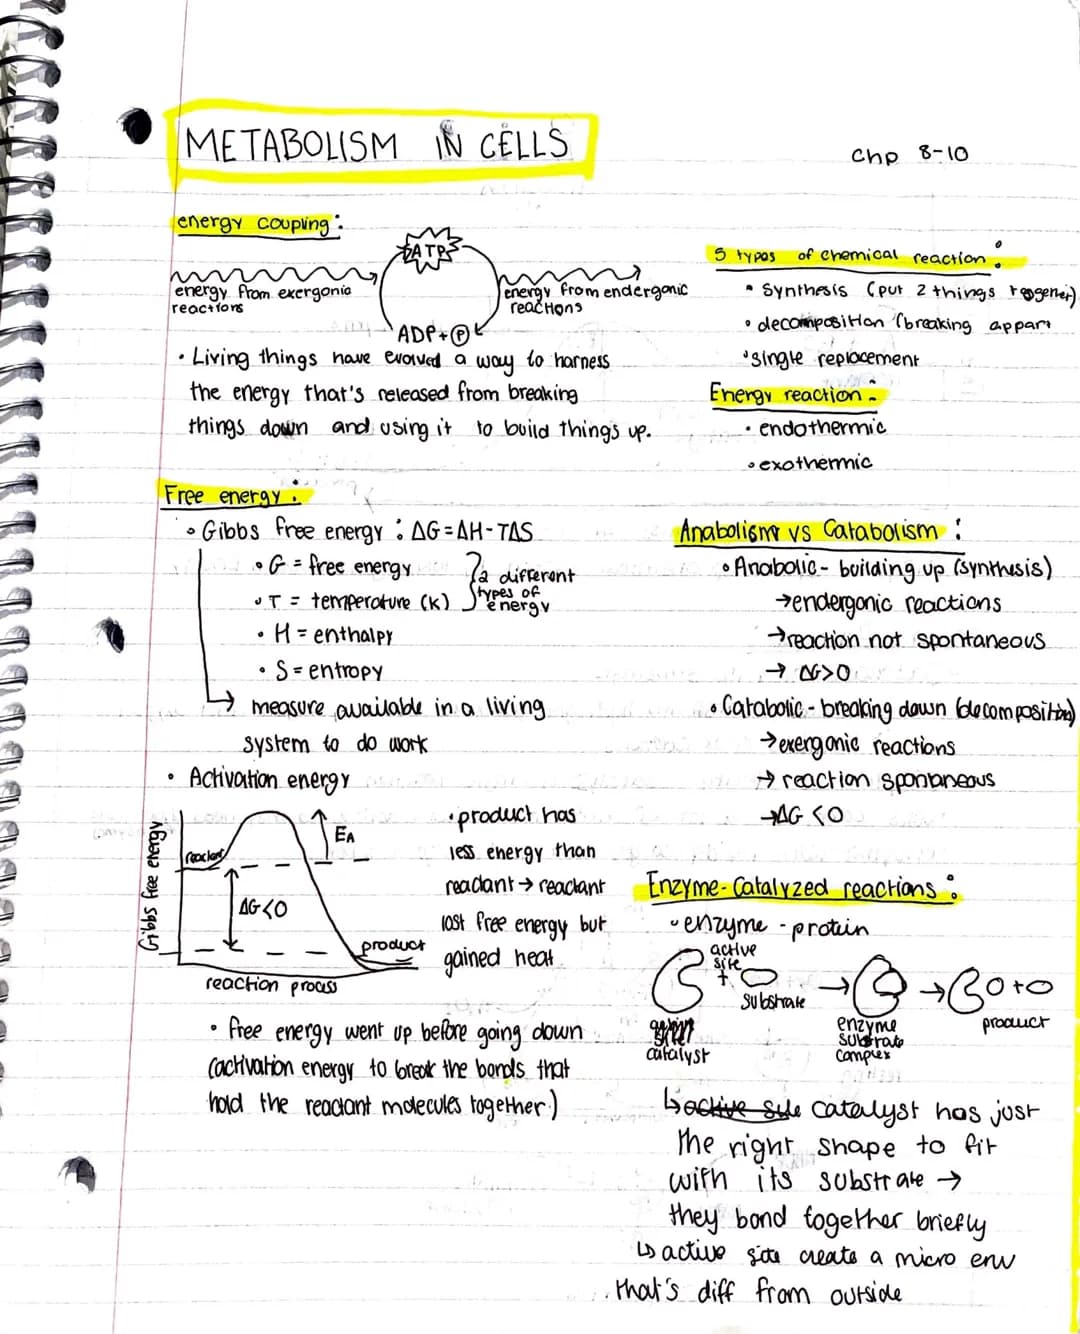 METABOLISM IN CELLS
Chp 8-10
energy coupling:
ATP
energy from exergonic
reactions
energy from endergonic
reactions
ADP+P
• Living things have evolved a way to harness
the energy that's released from breaking
things down and using it to build things up.
5 types of chemical reaction:
• Synthesis (put 2 things together)
• decomposition (breaking appart
• single replacement
Energy reaction:
• endothermic
• exothermic
Free energy:
• Gibbs free energy: ΔG=ΔH-TΔS
• G = free energy
• T = temperature (K)
2 different
types of
energy
• H = enthalpy
• S = entropy
→ measure available in a living
system to do work
• Activation energy
Gibbs free energy
reactant
EA
ΔG<0
product
reaction process
• product has
less energy than
reactant → reactant
lost free energy but
gained heat
• free energy went up before going down
(activation energy to break the bonds that
hold the reactant molecules together)
Anabolism vs Catabolism:
• Anabolic - building up (synthesis)
→ endergonic reactions
→ reaction not spontaneous
→ ΔG>0
• Catabolic - breaking down (decomposition)
→ exergonic reactions
→ reaction spontaneous
→ ΔG<0
Enzyme-Catalyzed reactions:
• enzyme - protein
active
site
+
substrate
→
→
+
catalyst
enzyme
substrate
complex
product
↳ active site catalyst has just
the right shape to fit
with its substrate →
they bond together briefly
↳ active site create a micro env
that's diff from outside